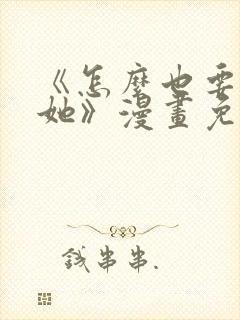 《怎麽也要
她》漫畫免
錢串串.